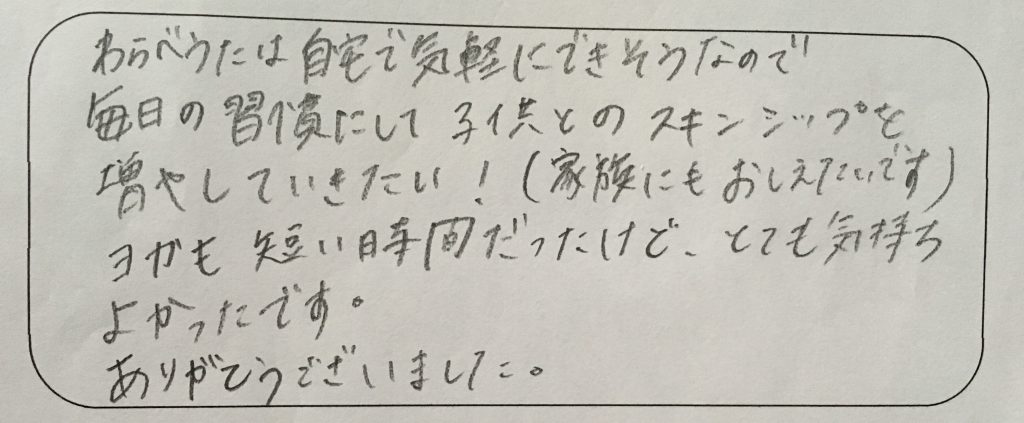 わらべうたは自宅で気軽にできそうなので
毎日の習慣にして子供とのスキンシップを
増やしていきたい！（家族にもおしえたいです）
ヨガも短い時間だったけど、とても気持ち
よかったです。
ありがとうございました。